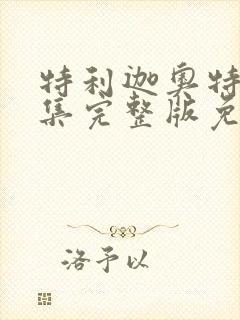 特利迦奥特
集完整版免
洛予以